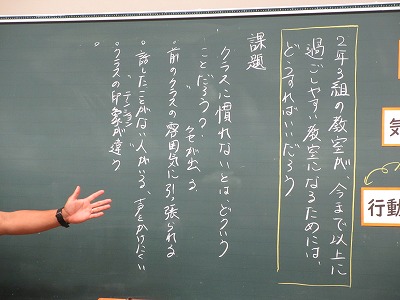 2年3組の教室が、今まで以上に
過ごしやすい教室になるためには、
どうすればいいだろう
課題
クラスに慣れないとは、どういう
ことだろう?
〃 クセが出る
前のクラスの雰囲気に引っ張られる
話したことがない人がいる、声をかけにくい
〃 テンション 〃
クラスの印象が違う
気
行動